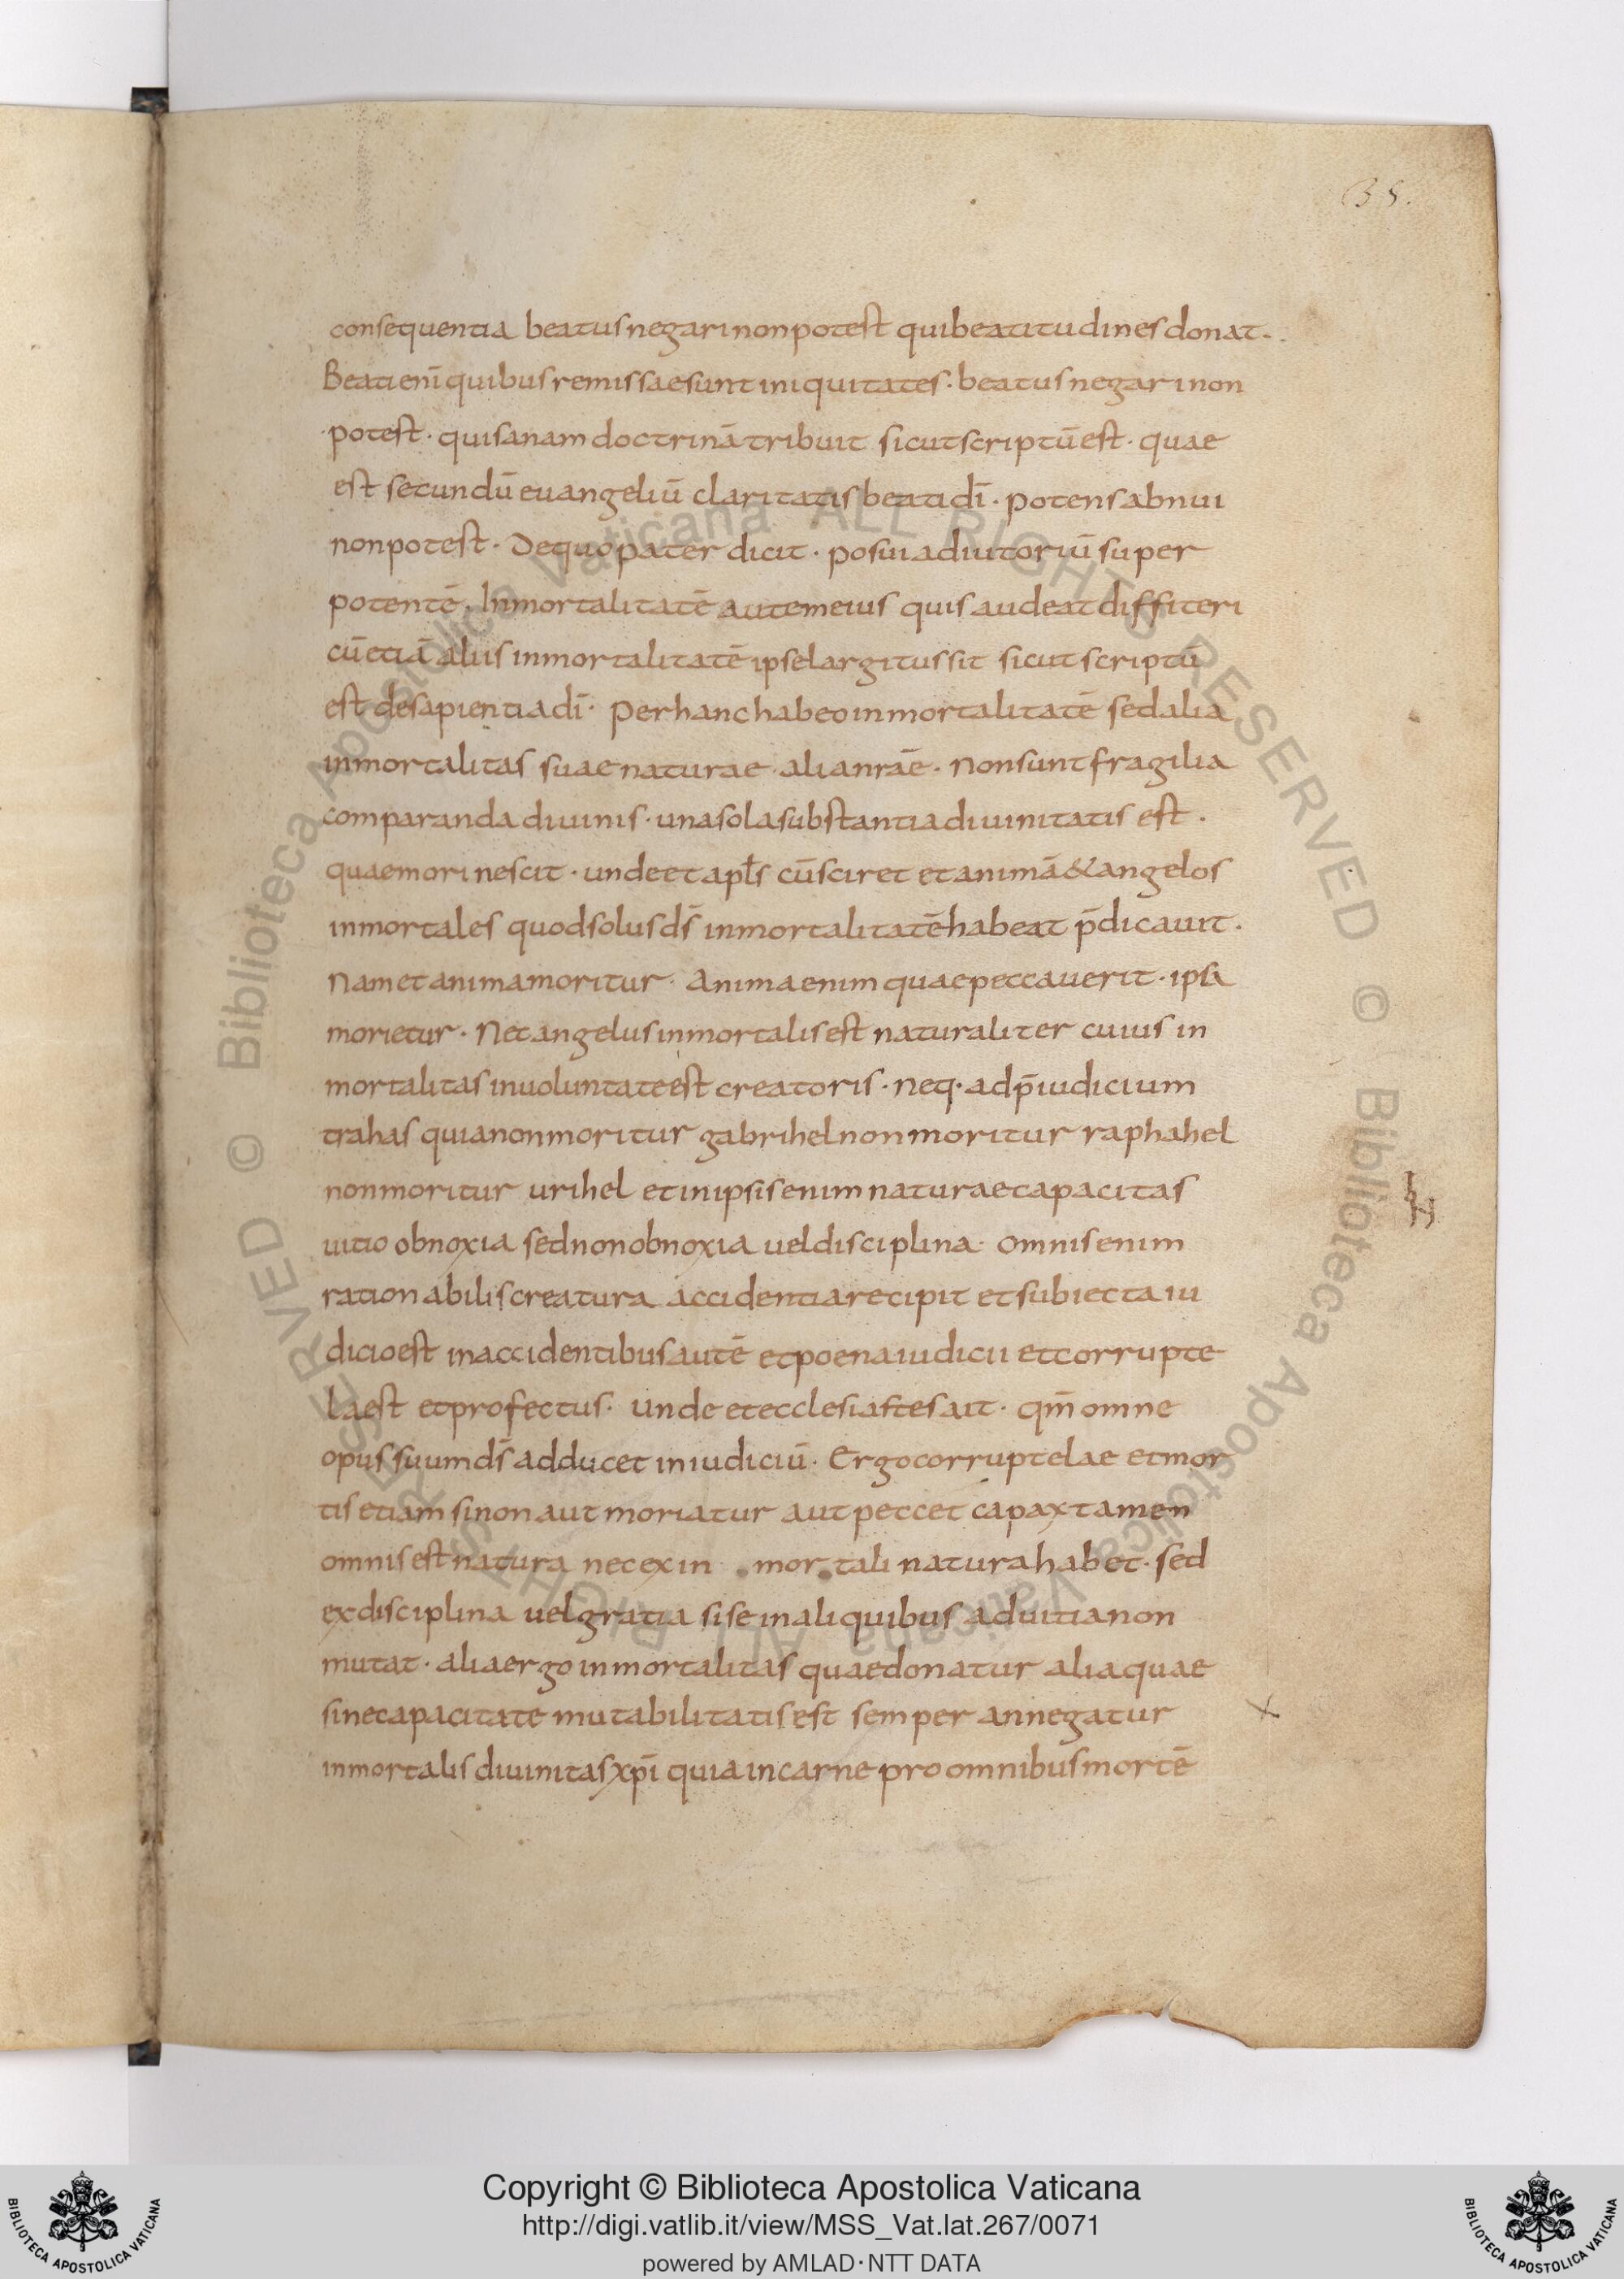 35.
consequentia beatus negari non potest qui beatitudines donat.
Beati enī quibus remissae sunt iniquitates · beatus negari non
potest · qui sanam doctrinā tribuit sicut scriptū est · quae
est secundū euangeliū claritatis beati dī · potens abnui
non potest · De quo pater dicit · posui adiutoriū super
potentē · Inmortalitatē autem eius quis audeat diffiteri
cū etiā aliis inmortalitatē ipse largitus sit sicut scriptū
est de sapientia dī · Per hanc habeo inmortalitatē sed alia
inmortalitas suae naturae · alia nrāe · Non sunt fragilia
comparanda diuinis · una sola substantia diuinitatis est ·
quae mori nescit · unde et apłs cū sciret et animā & angelos
inmortales quod solus ds̄ inmortalitatē habeat p̄dicauit ·
Nam et anima moritur · Anima enim quae peccauerit · ipsa
morietur · Nec angelus inmortalis est naturaliter cuius in
mortalitas in uoluntate est creatoris · neq· ad p̄iudicium
trahas quia non moritur gabrihel non moritur raphahel
non moritur urihel et in ipsis enim naturae capacitas
uitio obnoxia sed non obnoxia uel disciplina · omnis enim
rationabilis creatura accidentia recipit et subiecta iu
dicio est in accidentibus autē et poena iudicii et corrupte
la est et profectus · unde et ecclesiastes ait · qm̄ omne
opus suum ds̄ adducet in iudiciū · Ergo corruptelae et mor
tis etiam si non aut moriatur aut peccet capax tamen
omnis est natura nec ex in mor tali natura habet · sed
ex disciplina uel gratia si se in aliquibus ad uitia non
mutat · alia ergo inmortalitas quae donatur alia quae
sine capacitate mutabilitatis est semper an negatur
inmortalis diuinitas xpī quia in carne pro omnibus mortē
Copyright © Biblioteca Apostolica Vaticana
http://digi.vatlib.it/view/MSS_Vat.lat.267/0071
powered by AMLAD · NTT DATA
BIBLIOTECA APOSTOLICA VATICANA
BIBLIOTECA APOSTOLICA VATICANA
© Biblioteca Apostolica Vaticana ALL RIGHTS RESERVED
© Biblioteca Apostolica Vaticana ALL RIGHTS RESERVED